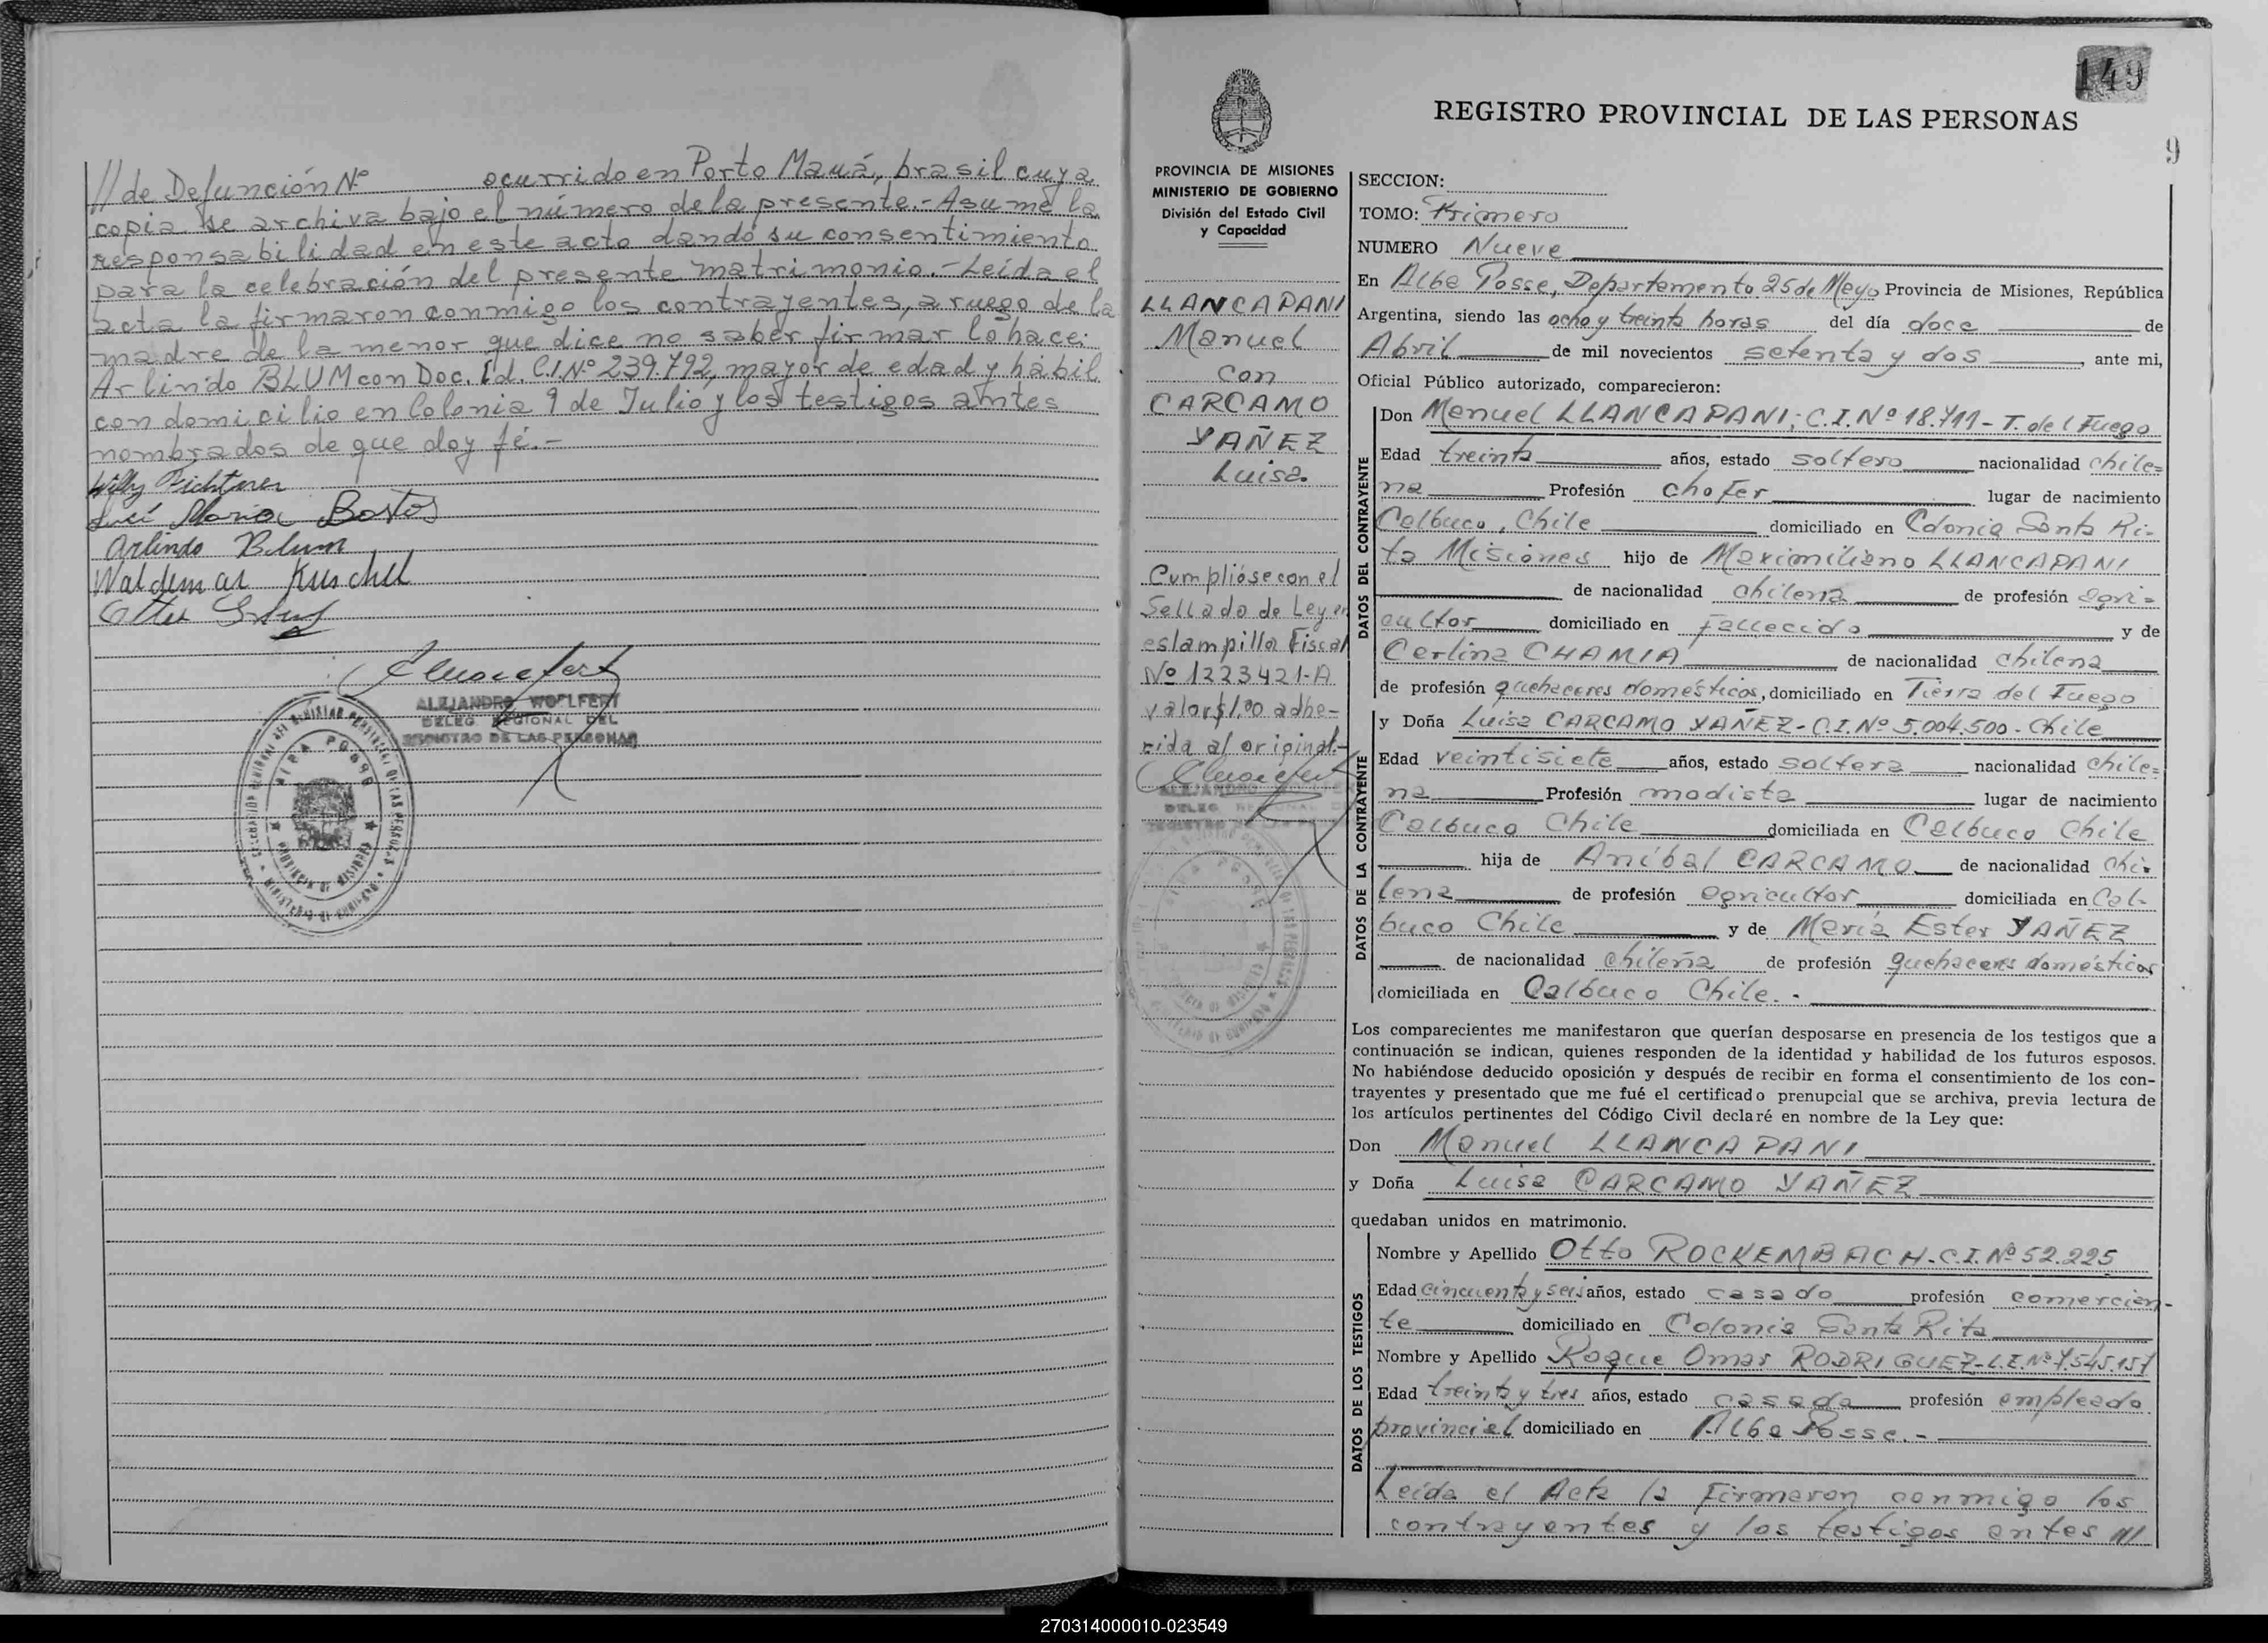 // de Defunción Nº ocurrido en Porto Mauá, brasil cuya
copia se archiva bajo el número de la presente.- Asume la
responsabilidad en este acto dando su consentimiento
para la celebración del presente matrimonio.- Leída el
acta la firmaron conmigo los contrayentes, a ruego de la
madre de la menor que dice no saber firmar lo hace:
Arlindo BLUM con Doc. Id. C.I.Nº 239.792, mayor de edad y hábil
con domicilio en Colonia 9 de Julio y los testigos antes
nombrados de que doy fé.-
Willy
Maria Bastos
Arlindo Blum
Waldemar Kuschel
ALEJANDRO WOELFERT
DELEG. REGIONAL DEL
REGISTRO DE LAS PERSONAS
ALBA POSSE
PROVINCIA DE MISIONES
149
REGISTRO PROVINCIAL DE LAS PERSONAS
9
PROVINCIA DE MISIONES
MINISTERIO DE GOBIERNO
División del Estado Civil
y Capacidad
LLANCAPANI
Manuel
con
CARCAMO
YAÑEZ
Luisa
Cumplióse con el
Sellado de Ley en
estampilla Fiscal
Nº 1223421-A
valor $1,00 adhe-
rida al original.-
SECCION:
TOMO: Primero
NUMERO Nueve
En Alba Posse, Departamento 25 de Mayo Provincia de Misiones, República
Argentina, siendo las ocho y treinta horas del día doce de
Abril de mil novecientos setenta y dos, ante mi,
Oficial Público autorizado, comparecieron:
DATOS DEL CONTRAYENTE
Don Manuel LLANCAPANI; C.I.Nº 18.711- T. del Fuego
Edad treinta años, estado soltero nacionalidad chile=
na Profesión chofer lugar de nacimiento
Calbuco, Chile domiciliado en Colonia Santa Ri-
ta Misiones hijo de Maximiliano LLANCAPANI
de nacionalidad chilena de profesión agri=
cultor domiciliado en fallecido y de
Cerlina CHAMIA de nacionalidad chilena
de profesión quehaceres domésticos, domiciliado en Tierra del Fuego
DATOS DE LA CONTRAYENTE
y Doña Luisa CARCAMO YAÑEZ- C.I.Nº 5.004.500- Chile
Edad veintisiete años, estado soltera nacionalidad chile=
na Profesión modista lugar de nacimiento
Calbuco Chile domiciliada en Calbuco Chile
hija de Aníbal CARCAMO de nacionalidad chi-
lena de profesión agricultor domiciliada en Cal-
buco Chile y de María Ester YAÑEZ
de nacionalidad chilena de profesión quehaceres domésticos
domiciliada en Calbuco Chile.-
Los comparecientes me manifestaron que querían desposarse en presencia de los testigos que a
continuación se indican, quienes responden de la identidad y habilidad de los futuros esposos.
No habiéndose deducido oposición y después de recibir en forma el consentimiento de los con-
trayentes y presentado que me fué el certificado prenupcial que se archiva, previa lectura de
los artículos pertinentes del Código Civil declaré en nombre de la Ley que:
Don Manuel LLANCAPANI
y Doña Luisa CARCAMO YAÑEZ
quedaban unidos en matrimonio.
DATOS DE LOS TESTIGOS
Nombre y Apellido Otto ROCKEMBACH-C.I.Nº 52.225
Edad cincuenta y seis años, estado casado profesión comercian-
te domiciliado en Colonia Santa Rita
Nombre y Apellido Roque Omar RODRIGUEZ-L.E.Nº 7.545.157
Edad treinta y tres años, estado casado profesión empleado
provincial domiciliado en Alba Posse.-
Leída el Acta la firmaron conmigo los
contrayentes y los testigos antes ///
270314000010-023549